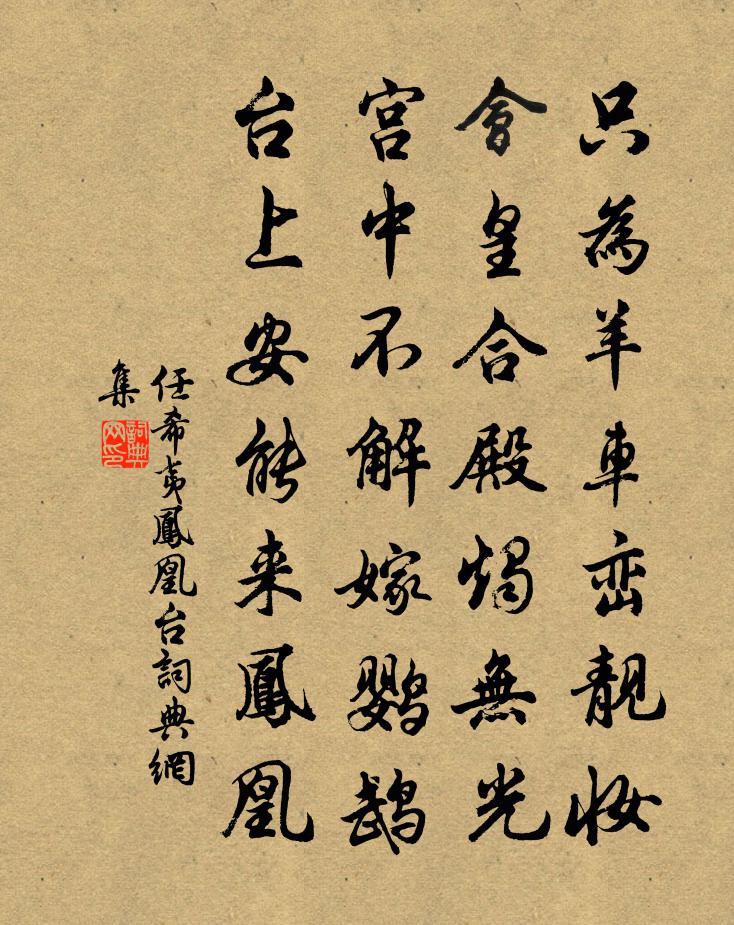 只為羊車峦靚妆
會皇合殿燭無光
宫中不解嫁鸚鵡
台上安能来鳳凰
任希夷鳳凰台詞典網
集
詞典
网印